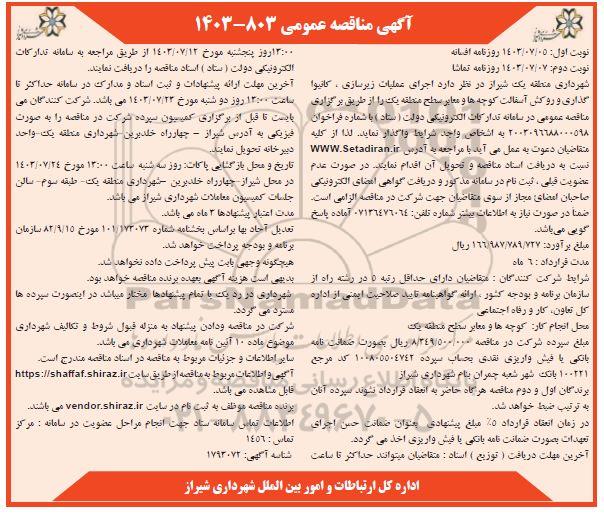 آگهی مناقصه عمومی ۸۰۳-۱۴۰۳
نوبت اول: ۱۴۰۳/۰۷/۰۵ روزنامه افسانه
نوبت دوم: ۱۴۰۳/۰۷/۰۷ روزنامه تماشا
شهرداری منطقه یک شیراز در نظر دارد اجرای عملیات زیرسازی ، کانیوا
گذاری و روکش آسفالت کوچه ها و معابر سطح منطقه یک را از طریق برگزاری
مناقصه عمومی در سامانه تدارکات الکترونیکی دولت ( ستاد ) با شماره فراخوان
۲۰۰۳۰۹۶۷۸۸۰۰۰۵۹۸ به اشخاص واجد شرایط واگذار نماید. لذا از کلیه
متقاضیان دعوت به عمل می آید با مراجعه به آدرس WWW.Setadiran.ir
نسبت به دریافت اسناد مناقصه و تحویل آن اقدام نمایند. در صورت عدم
عضویت قبلی ، ثبت نام در سامانه مذکور و دریافت گواهی امضای الکترونیکی
صاحبان امضای مجاز از سوی متقاضیان جهت شرکت در مناقصه الزامی است.
ضمنا در صورت نیاز به اطلاعات بیشتر شماره تلفن: ۰۷۱۳۶۴۷۶۰۶۴ آماده پاسخ
گویی می‌باشد.
مبلغ برآورد: ۱۶۶,۹۸۷,۷۸۹,۷۲۷ ریال
مدت قرارداد : ۶ ماه
شرایط شرکت کنندگان : متقاضیان دارای حداقل رتبه ۵ در رشته راه از
سازمان برنامه و بودجه کشور ، ارائه گواهینامه تایید صلاحیت ایمنی از اداره
کل تعاون، کار و رفاه اجتماعی
محل انجام کار: کوچه ها و معابر سطح منطقه یک
مبلغ سپرده شرکت در مناقصه ۸/۳۴۹/۵۰۰/۰۰۰ ریال بصورت ضمانت نامه
بانکی یا فیش واریزی نقدی بحساب سپرده ۱۰۰۸۰۵۵۰۴۷۴۲ کد مرجع
۱۰۰۲۲۱ بانک شهر شعبه چمران بنام شهرداری شیراز
برندگان اول و دوم مناقصه هرگاه حاضر به انعقاد قرارداد نشوند سپرده آنان
به ترتیب ضبط خواهد شد.
در زمان انعقاد قرارداد ۵٪ مبلغ پیشنهادی بعنوان ضمانت حسن اجرای
تعهدات بصورت ضمانت نامه بانکی یا فیش واریزی اخذ می گردد.
آخرین مهلت دریافت ( توزیع ) اسناد : متقاضیان میتوانند حداکثر تا ساعت
۱۳:۰۰روز پنجشنبه مورخ ۱۴۰۳/۰۷/۱۲ از طریق مراجعه به سامانه تدارکات
الکترونیکی دولت ( ستاد ) اسناد مناقصه را دریافت نمایند.
آخرین مهلت ارائه پیشنهادات و ثبت اسناد و مدارک در سامانه حداکثر تا
ساعت ۱۳:۰۰ روز دو شنبه مورخ ۱۴۰۳/۰۷/۲۳ می باشد. شرکت کنندگان می
بایست تا قبل از برگزاری کمیسیون سپرده شرکت در مناقصه را به صورت
فیزیکی به آدرس شیراز – چهارراه خلدبرین-شهرداری منطقه یک-واحد
دبیرخانه تحویل نمایند.
تاریخ و محل بازگشایی پاکات: روز سه شنبه ساعت ۱۳:۰۰ مورخ ۱۴۰۳/۰۷/۲۴
در محل شیراز-چهارراه خلدبرین –شهرداری منطقه یک- طبقه سوم- سالن
جلسات کمیسیون معاملات شهرداری شیراز می باشد.
مدت اعتبار پیشنهادها ۳ ماه می باشد.
تعدیل آحاد بها براساس بخشنامه شماره ۱۰۱/۱۷۳۰۷۳ مورخ ۸۲/۹/۱۵ سازمان
برنامه و بودجه پرداخت خواهد شد.
هیچگونه وجهی بابت پیش پرداخت داده نخواهد شد.
بدیهی است هزینه آگهی بعهده برنده مناقصه خواهد بود.
شهرداری در رد یک یا تمام پیشنهادها مختار میباشد در اینصورت سپرده ها
مسترد می گردد.
شرکت در مناقصه ودادن پیشنهاد به منزله قبول شروط و تکالیف شهرداری
موضوع ماده ۱۰ آئین نامه معاملات شهرداری می باشد.
سایر اطلاعات و جزئیات مربوط به مناقصه در اسناد مناقصه مندرج است.
آگهی و اطلاعات مربوط به مناقصه از طریق سایت https://shaffaf.shiraz.ir
قابل مشاهده می باشد.
برنده مناقصه موظف به ثبت نام در سایت vendor.shiraz.ir می باشند.
اطلاعات تماس سامانه ستاد جهت انجام مراحل عضویت در سامانه : مرکز
تماس : ۱۴۵۶
شناسه آگهی: ۱۷۹۳۰۷۲
اداره کل ارتباطات و امور بین الملل شهرداری شیراز
ParsNamadData